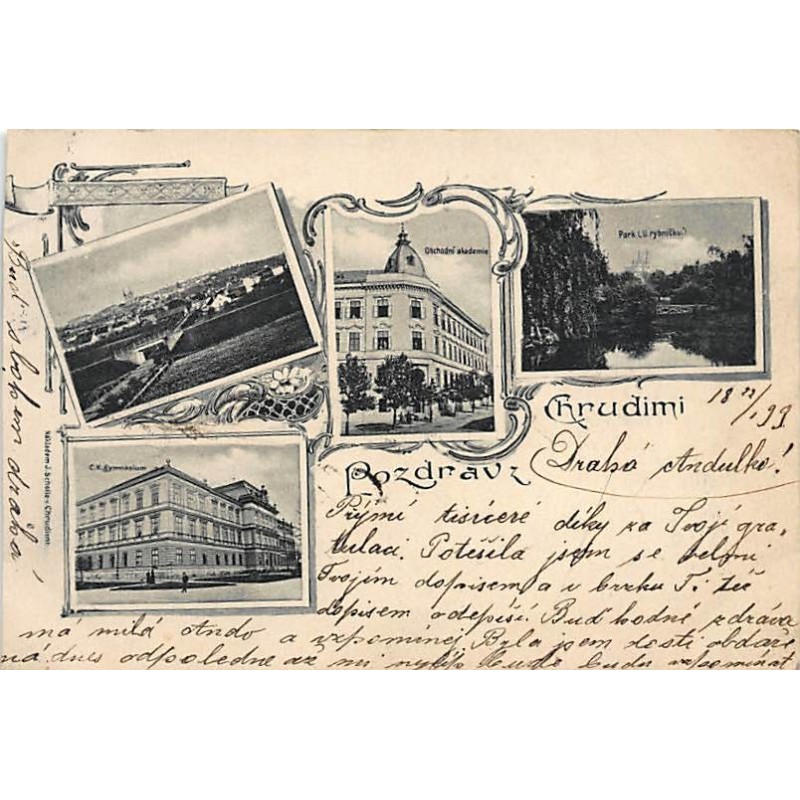 Obchodní akademie
Park (U rybníčku)
C.K. Gymnasium
Pozdrav z
Chrudimi
Nákladem J. Scheila v Chrudimi
18 22/1 99
Drahá Andulko!
Přijmi tisíceré díky za Tvojí gra-
tulaci. Potěšila jsem se velmi
Tvojím dopisem a v brzku Ti též
dopisem odepíši. Buď hodně zdráva
má milá Ando a vzpomínej. Byla jsem dosti obdaře
ná. dnes odpoledne až mi budu vzpomínat
Buď s bohem drahá